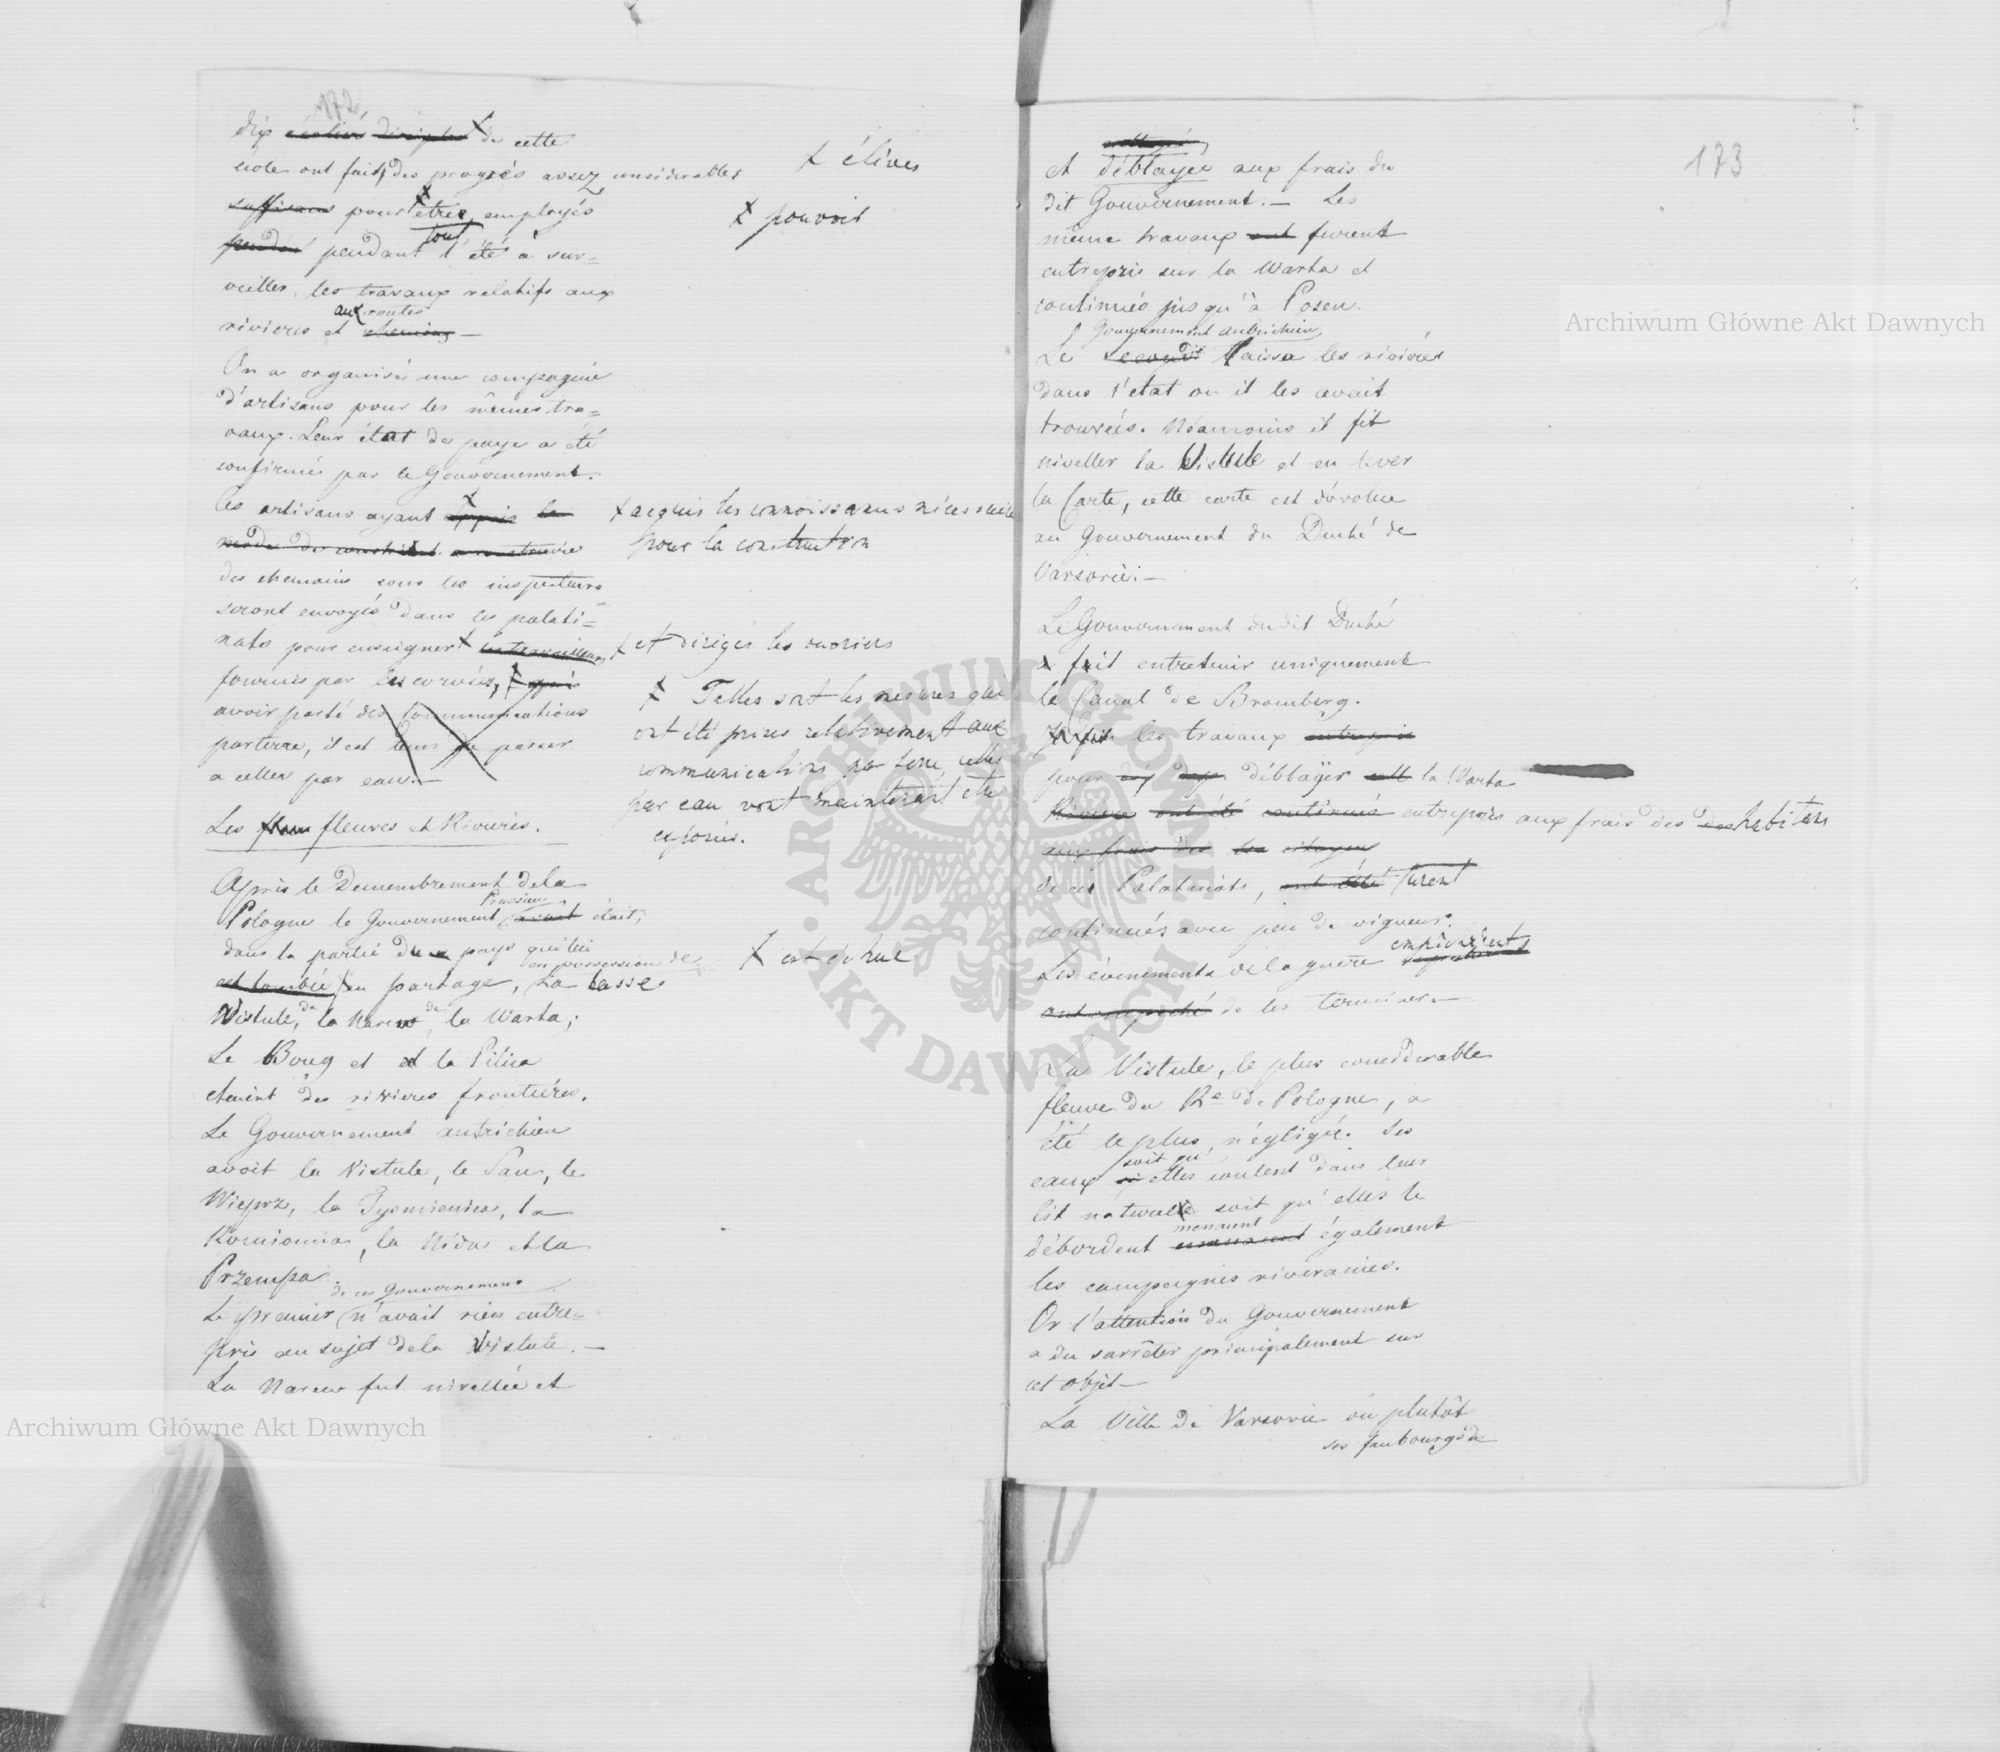 172
dix élèves disciples X de cette
école ont fait des progrès assez considerables
X élèves
suffisans pour X etre employés
X pouvoir
pendant pendant tout l'été à sur=
veiller les travaux relatifs aux
aux routes
rivieres et chemins —
On a organisé une compagnie
d'artisans pour les mêmes tra=
vaux. Leur état de paye a été
confirmé par le Gouvernement.
Ces artisans ayant X appris le
X acquis les connoissances nécessaires
mode de construire
pour la construction
des chemins sous les inspecteurs
seront envoyés dans les palati=
nats pour enseigner X les travailleurs
X et dirigés les ouvriers
fournis par les corvées, X après
X Telles sont les mesures qui
avoir parlé des communications
ont été prises relativement aux
par terre, il est tems de passer
communications par terre, celles
a celles par eau. —
par eau vont maintenant être
exposés.
Les fleuves et Rivieres.
Après le Demembrement de la
Prussien
Pologne le Gouvernement avait était,
dans la partie du pays qui lui
en possession de
X est échue
est tombée en partage, la basse
Vistule, de la Narew, de la Warta;
Le Boug et la Pilica
etaient des rivieres frontières.
Le Gouvernement autrichien
avoit la Vistule, le San, le
Wieprz, la Tysmienica, la
Kamionna, la Nida et la
Przemsa.
de ces Gouvernemens
Le premier n'avait rien entre=
pris au sujet de la Vistule. —
La Narew fut nivellée et
173
et déblayée aux frais du
dit Gouvernement. — Les
même travaux ont furent
entrepris sur la Warta et
continués jusqu'à Posen.
Gouvernement autrichien
Le second laissa les rivières
dans l'etat ou il les avait
trouvées. Néanmoins il fit
niveller la Vistule et en lever
la Carte, cette carte est dévolue
au Gouvernement du Duché de
Varsovie. —
Le Gouvernement du dit Duché
a fait entretenir uniquement
le Canal de Bromberg.
les travaux entrepris
pour déblayer la Warta
Riviere ont été continués entrepris aux frais des habitans
aux frais des citoyens
de ces Palatinats, ont été furent
continués avec peu de vigueur.
empêchèrent
Les évenements de la guerre
ont empeché de les terminer. —
La Vistule, le plus considerable
fleuve du Re de Pologne, a
été le plus négligée. Ses
soit qu'
eaux si elles coulent dans leur
lit naturel soit qu'elles le
menacent
débordent également
les campagnes riveraines.
Or l'attention du Gouvernement
a du sarrêter principalement sur
cet objet —
La Ville de Varsovie ou plutôt
ses faubourgs de
Archiwum Główne Akt Dawnych
Archiwum Główne Akt Dawnych
ARCHIWUM GŁÓWNE AKT DAWNYCH